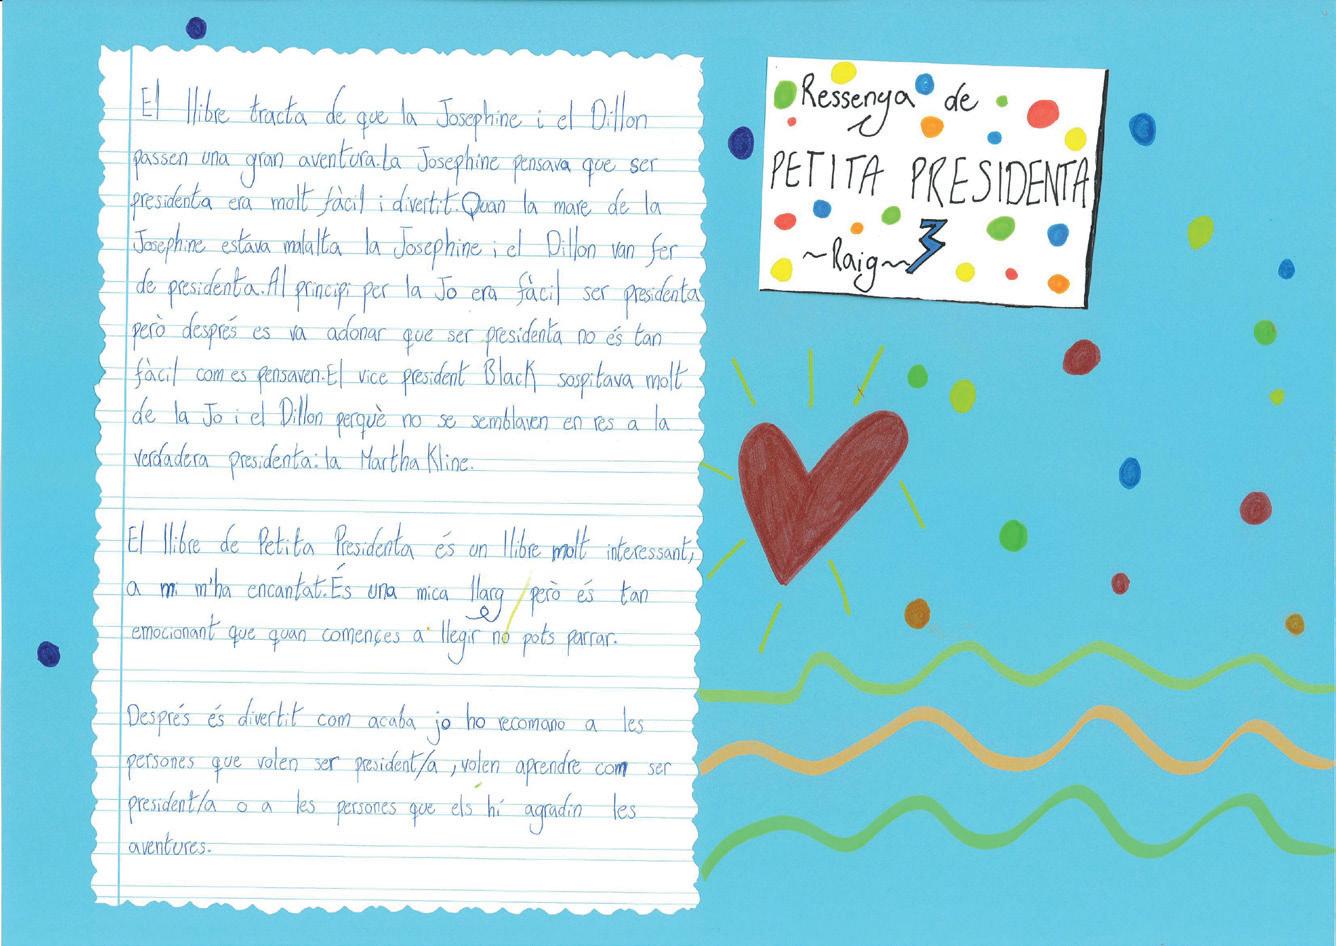 El llibre tracta de que la Josephine i el Dillon
passen una gran aventura.La Josephine pensava que ser
presidenta era molt fàcil i divertit.Quan la mare de la
Josephine estava malalta la Josephine i el Dillon van fer
de presidenta.Al principi per la Jo era fàcil ser presidenta
però després es va adonar que ser presidenta no és tan
fàcil com es pensaven.El vice president Black sospitava molt
de la Jo i el Dillon perquè no se semblaven en res a la
verdadera presidenta: la Martha Kline.
El llibre de Petita Presidenta és un llibre molt interessant,
a mi m'ha encantat.És una mica llarg però és tan
emocionant que quan començes a llegir no pots parrar.
Després és divertit com acaba jo ho recomano a les
persones que volen ser president/a ,volen aprendre com ser
president/a o a les persones que els hi agradin les
aventures.
Ressenya de
PETITA PRESIDENTA
~Raig~